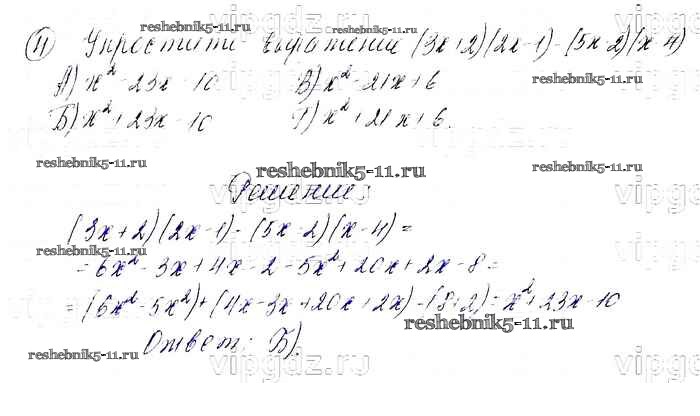 reshebnik5-11.ru reshebnik5-11.ru reshebnik5-11.ru
11) Упростить выражение (3x+2)(2x-1)-(5x-2)(x-4)
А) x²-23x-10 В) x²-21x+6
Б) x²+23x-10 Г) x²+21x+6.
reshebnik5-11.ru reshebnik5-11.ru reshebnik5-11.ru
Решение:
(3x+2)(2x-1)-(5x-2)(x-4)=
reshebnik5-11.ru reshebnik5-11.ru
=6x²-3x+4x-2-5x²+20x+2x-8=
=(6x²-5x²)+(4x-3x+20x+2x)-(8+2)=x²+23x-10
reshebnik5-11.ru
Ответ: Б).
reshebnik5-11.ru reshebnik5-11.ru
vipgdz.ru